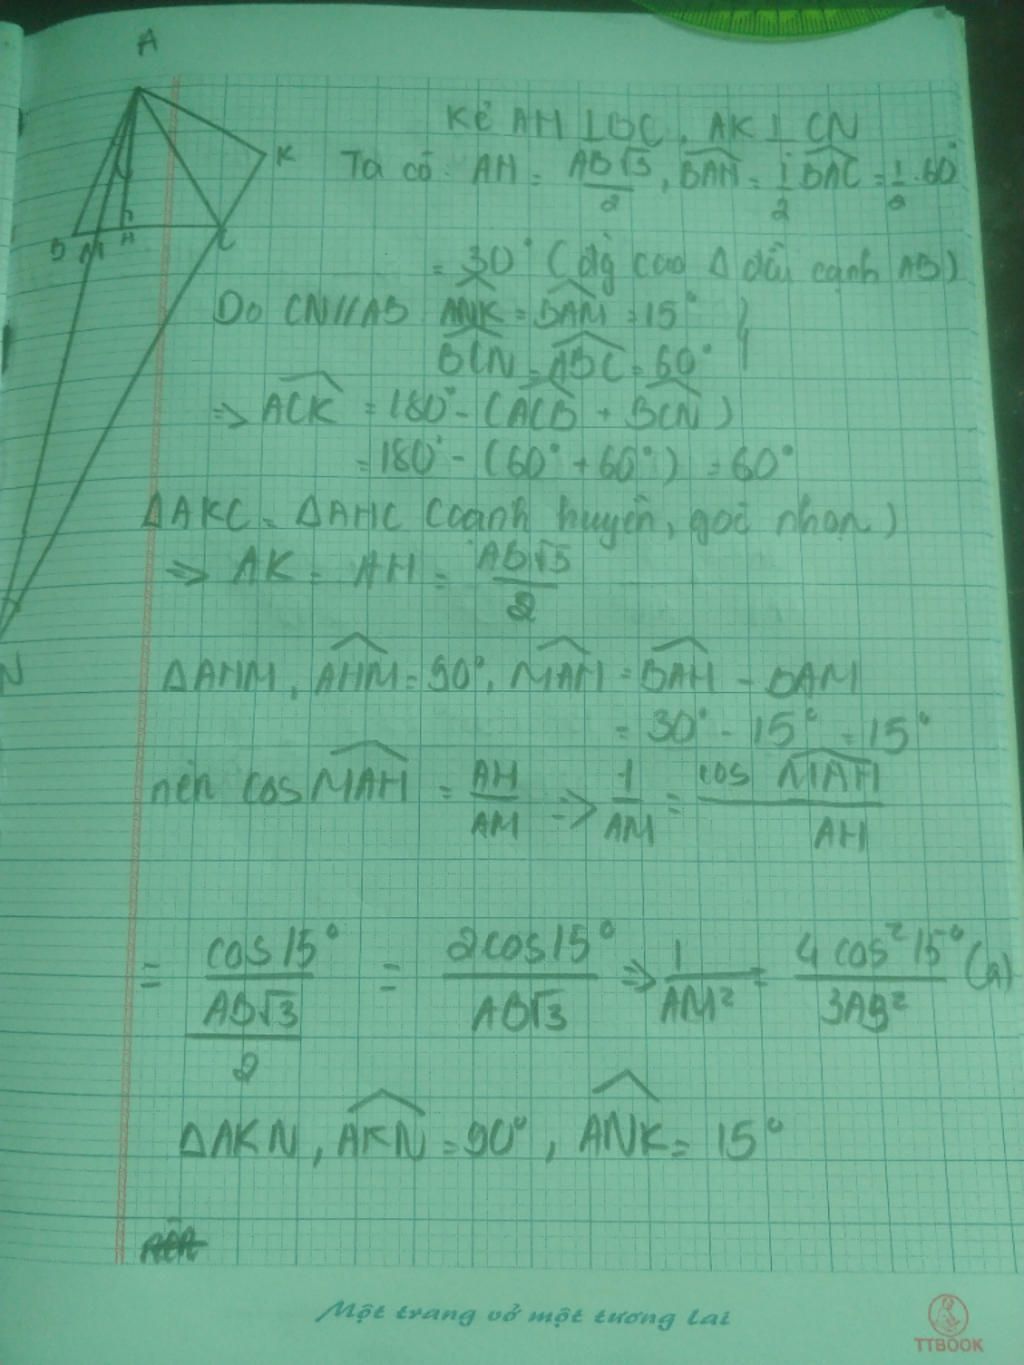 A
K
B M H C
N
Kẻ AH ⊥ BC, AK ⊥ CN
Ta có: AH = AB√3/2, BAH = 1/2 BAC = 1/2 . 60°
= 30° (đg cao Δ đều cạnh AB)
Do CN//AB ANK = BAM = 15° }
BCN = ABC = 60°
=> ACK = 180° - (ACB + BCN)
= 180° - (60° + 60°) = 60°
ΔAKC = ΔAHC (cạnh huyền, góc nhọn)
=> AK = AH = AB√3/2
ΔAHM, AHM = 90°, MAH = BAH - BAM
= 30° - 15° = 15°
nên cos MAH = AH/AM => 1/AM = cos MAH/AH
= cos15°/(AB√3/2) = 2cos15°/AB√3 => 1/AM² = 4cos²15°/3AB² (1)
ΔAKN, AKN = 90°, ANK = 15°
Một trang vở một tương lai
TTBOOK